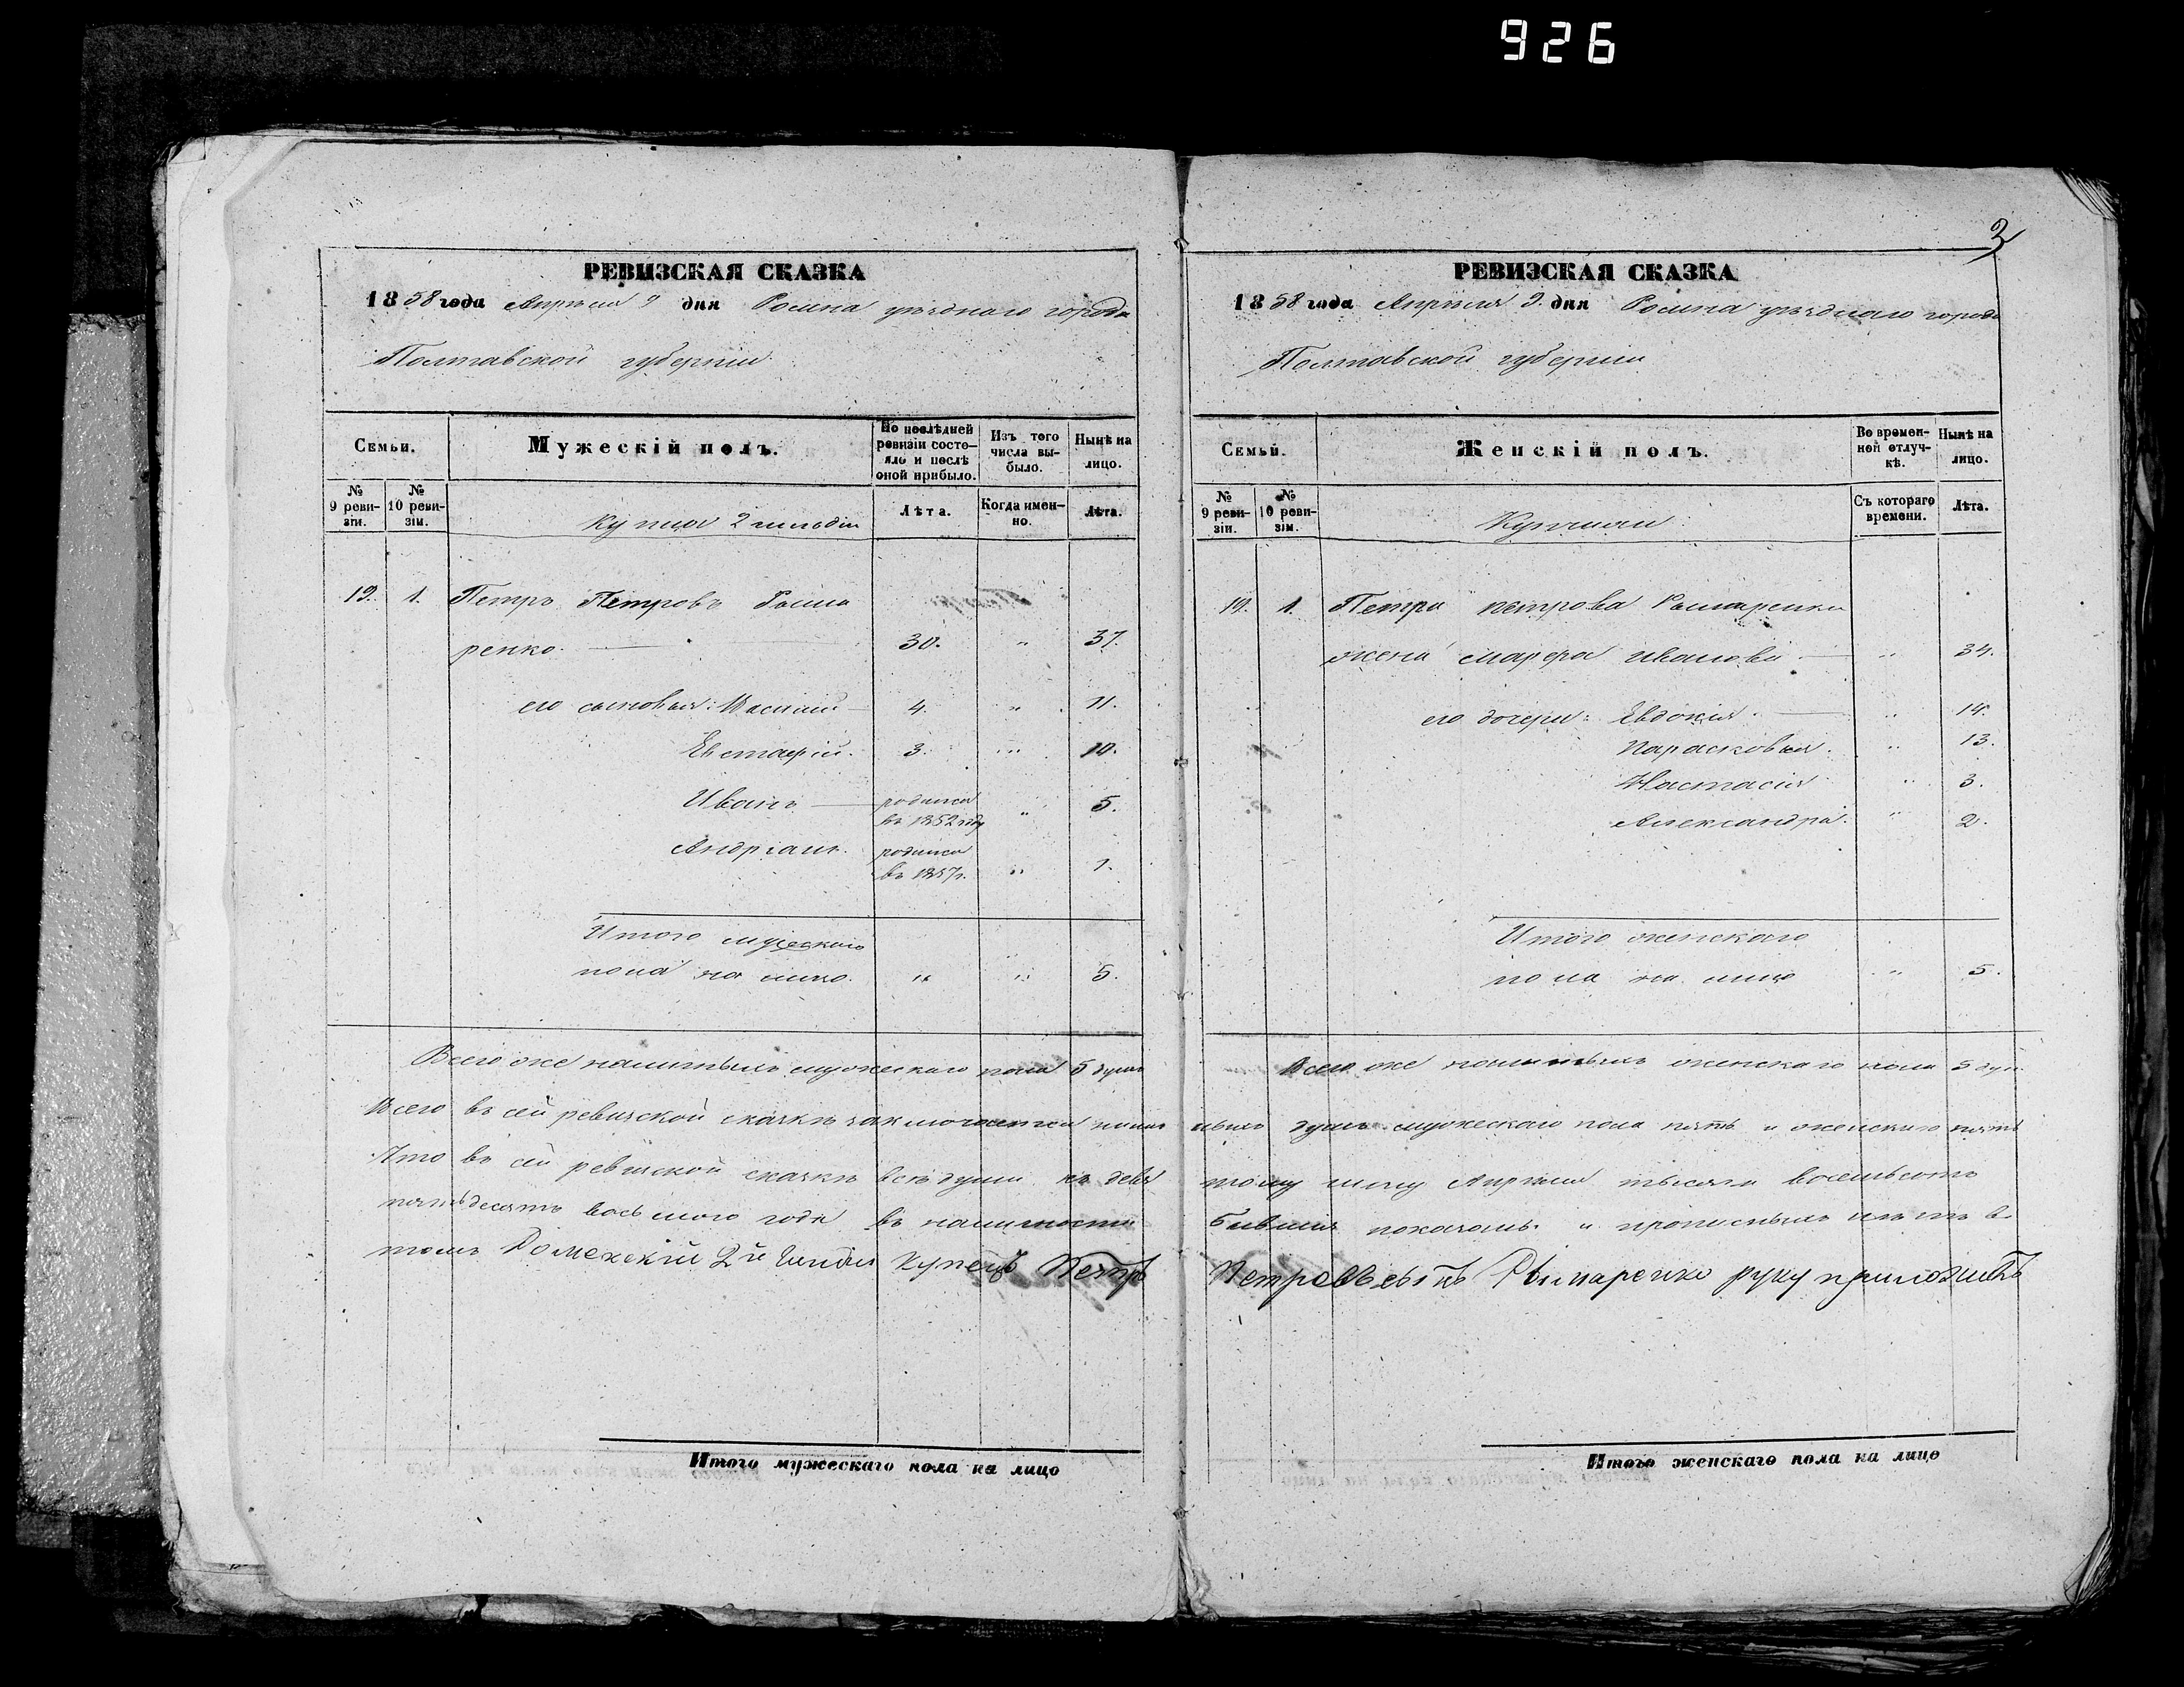 926
3
РЕВИЗСКАЯ СКАЗКА
1858 года Апреля 9 дня Ромна уезднаго города
Полтавской губернии
Семьи.
Мужескій полъ.
По послѣдней ревизіи состояло и послѣ оной прибыло.
Изъ того числа выбыло.
Нынѣ на лицо.
№ 9 ревизіи.
№ 10 ревизіи.
Купцы 2 гильдіи
Лѣта.
Когда именно.
Лѣта.
19. 1. Петръ Петровъ Рыма
ренко. 30. " 37.
его сыновья: Василий 4. " 11.
Евстафій. 3. " 10.
Иванъ родился въ 1852 году " 5.
Андріанъ. родился въ 1857 г. " 1.
Итого мужескаго
пола на лицо. " " 5.
Всего же наличныхъ мужескаго пола 5 душъ
Всего въ сей ревизской сказкѣ заключается налич
Что въ сей ревизской сказкѣ всѣ души къ девя
пятьдесятъ восьмого года въ наличности
томъ Роменский 2й Гильдии Купецъ Петръ
Итого мужескаго пола на лицо
РЕВИЗСКАЯ СКАЗКА
1858 года Апреля 9. дня Ромна уезднаго города
Полтавской губернии
Семьи.
Женскій полъ.
Во временной отлучкѣ.
Нынѣ на лицо.
№ 9 ревизіи.
№ 10 ревизіи.
Купчихи
Съ котораго времени.
Лѣта.
19. 1. Петра петрова Рымаренки
жена Марфа Иванова " 34.
его дочери: Евдокия. " 14.
Парасковья. " 13.
Настасія " 3.
Александра. " 2.
Итого женскаго
пола на лицо " 5.
Всего же наличныхъ женскаго пола 5 душ.
ныхъ душъ мужескаго пола пять и женскаго пять
тому числу Апреля тысяча восемьсотъ
бывшия показаны и прописныхъ нѣтъ в
Петровъ сынъ Рымаренко руку приложилъ
Итого женскаго пола на лицо